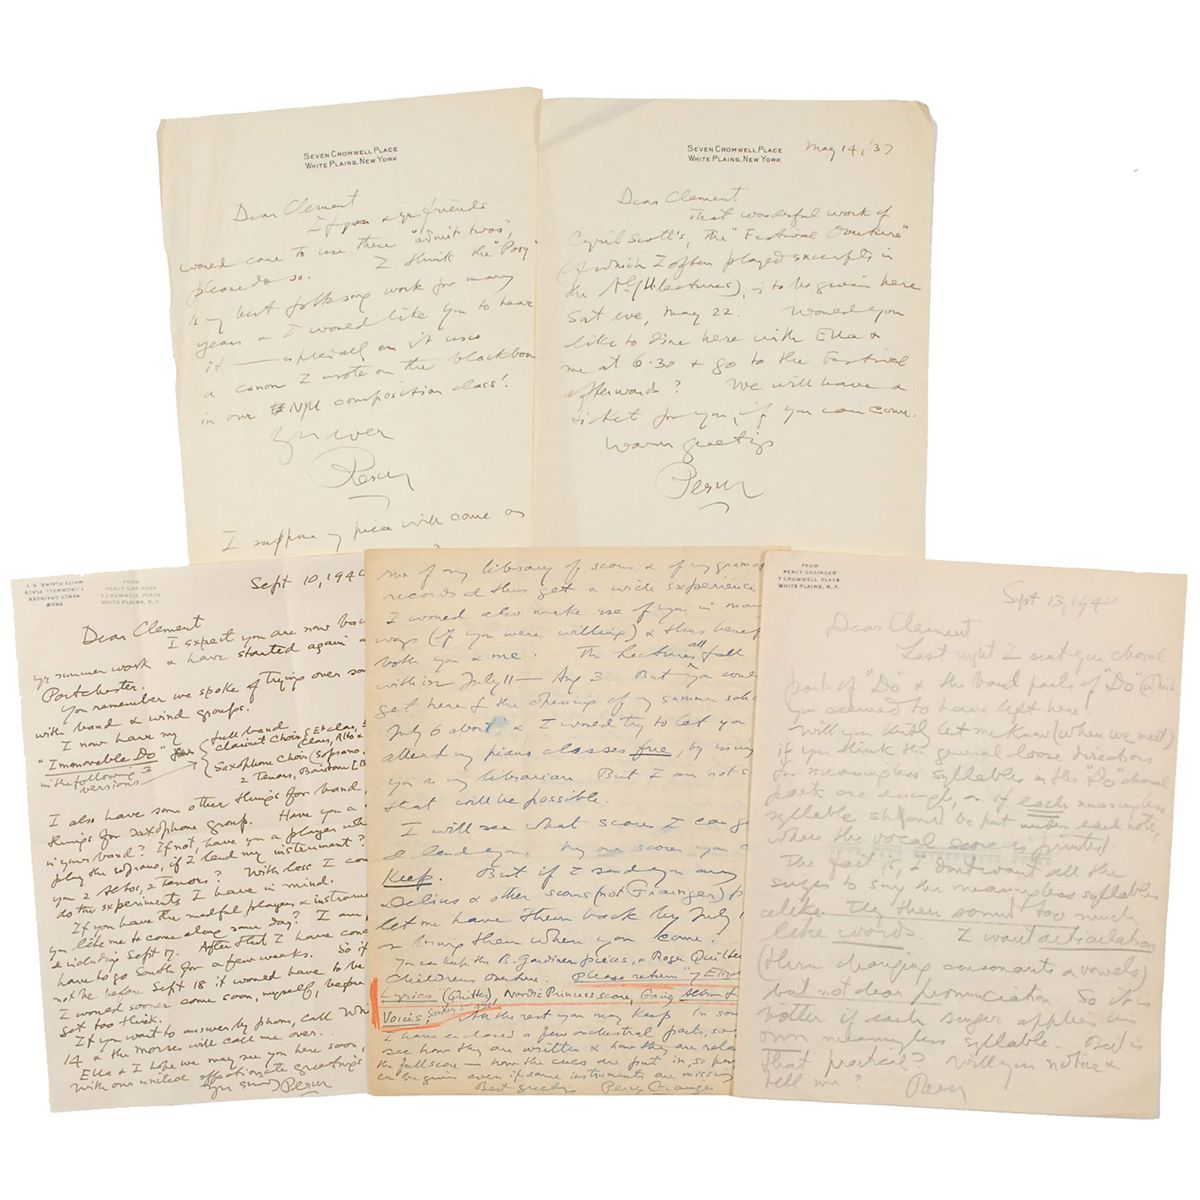 SEVEN CROMWELL PLACE
WHITE PLAINS, NEW YORK
Dear Clement
If you & yr friends
would care to use these "admit twos",
please do so. I think the "Posy"
is my best folksong work for many
years & I would like you to hear
it — especially as it uses
a canon I wrote on the blackboa
in our NYU composition class!
Yrs ever
Percy
I suppose my piece will come on
SEVEN CROMWELL PLACE
WHITE PLAINS, NEW YORK
May 14, '37
Dear Clement
That wonderful work of
Cyril Scott's, the "Festival Overture"
(of which I often played excerpts in
the lectures), is to be given here
Sat eve, May 22. Would you
like to dine here with Ella &
me at 6.30 & go to the Festival
afterwards? We will have a
ticket for you, if you can come.
Warm greetings
Percy
FROM
PERCY GRAINGER
7 CROMWELL PLACE
WHITE PLAINS, N.Y.
FROM
PERCY GRAINGER
7 CROMWELL PLACE
WHITE PLAINS, N.Y.
Sept 10, 1940
Dear Clement
I expect you are now bac
yr summer work & have started again a
Portchester.
You remember we spoke of trying over so
with band & wind groups.
I now have my
"Immovable Do" for
in the following 3
versions
full band
Clarinet Choir (E♭ clar,
Saxophone Choir (soprano
2 Tenors, Baritone
I also have some other things for band,
things for saxophone group. Have you a
in your band? If not have you a player who
play the soprano, if I lend my instrument?
you 2 Altos, 2 Tenors? With less I can
do the experiments I have in mind.
If you have the needful players & instrume
you like me to come along some day? I am
& including Sept 17. After that I have con
have to go South for a few weeks. So if
not be before Sept 18 it would have to be
I would sooner come soon, myself, before
get too thick.
If you want to answer by phone, call Whi
14 & the Morses will call me over.
Ella & I hope we may see you here soon,
With our united affectionate greetings
Yrs ever Percy
run of my library of scores & of my gramop
records & thus get a wide experience
I would also make use of you in man
ways (if you were willing) & thus benef
both you & me. The lectures all fall
within July 11 — Aug 3. But you could
get here for the opening of my summer scho
July 6 about & I would try to let you
attend my piano classes free, by using
you as my librarian. But I am not s
that will be possible.
I will see what scores I can g
& lend you. My own scores you c
keep. But if I send you any
Delius & other scores (not Grainger) p
let me have them back by July
or bring them when you come.
You can keep the B. Gardiner pieces, & Roger Quilter
Children overture. Please return "7 Eliza
Lyrics" (Quilter), Nordic Princess score, Grieg Album f
Voices, the rest you may keep. In som
I have enclosed a few orchestral parts, so
see how they are written & how they are rela
the fullscore — how the cues are put in so
can be given even if some instruments are missing
Best greetings Percy Grainger
FROM
PERCY GRAINGER
7 CROMWELL PLACE
WHITE PLAINS, N.Y.
Sept 13, 1940
Dear Clement
Last night I sent you choral
parts of "Do" & the band parts of "Do" (which
you seemed to have left here.
Will you kindly let me know (when we meet)
if you think the general loose directions
for meaningless syllables in the "Do" choral
parts are enough, or if each meaningless
syllable should be put under each note,
when the vocal score is printed
The fact is, I dont want all the
singers to sing the meaningless syllables
alike they then sound too much
like words. I want articulation
(thru changing consonants & vowels)
but not clear pronunciation. So it is
better if each singer applies his
own meaningless syllable. But is
that practical? Will you notice &
tell me? Percy